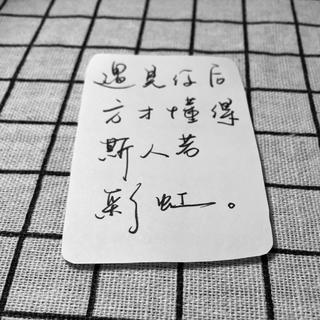 遇见你后
方才懂得
斯人若
彩虹。